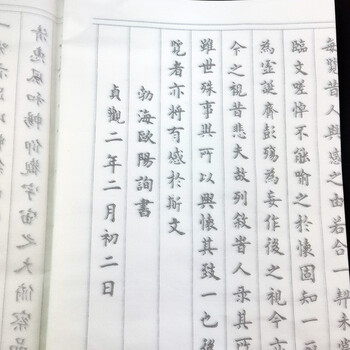 每覽昔人興感之由若合一契未嘗
臨文嗟悼不能喻之於懷固知一
為虛誕齊彭殤為妄作後之視今亦
今之視昔悲夫故列敘昔人錄其
雖世殊事異所以興懷其致一也後
覽者亦將有感於斯文
勃海歐陽詢書
貞觀二年二月初二日
清惠風和暢仰觀宇宙之大俯察品